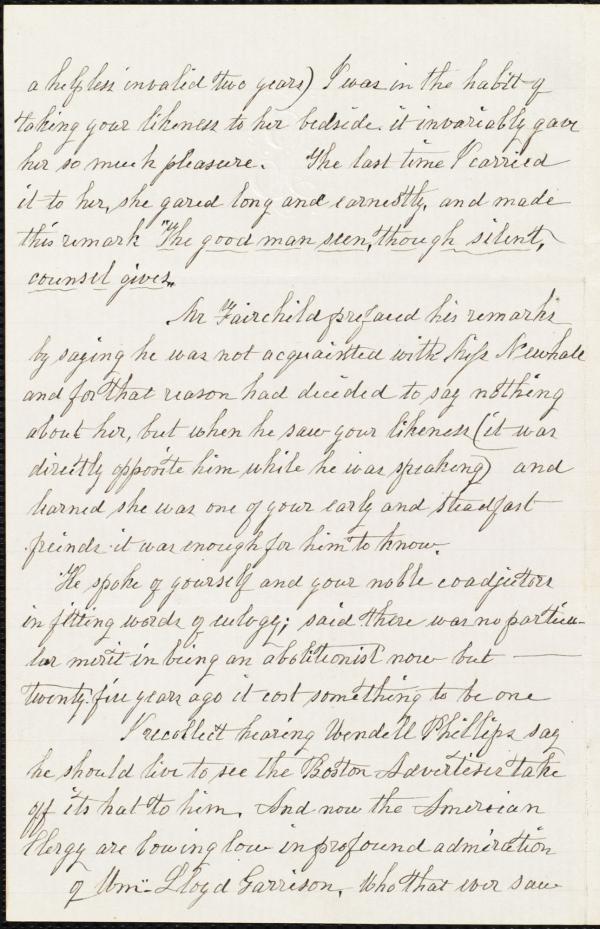 a helpless invalid two years) I was in the habit of
taking your likeness to her bedside. it invariably gave
her so much pleasure. The last time I carried
it to her, she gazed long and earnestly, and made
this remark "The good man seen, though silent,
counsel gives"
Mr Fairchild prefaced his remarks
by saying he was not acquainted with Miss Newhall
and for that reason had decided to say nothing
about her, but when he saw your likeness (it was
directly opposite him while he was speaking) and
learned she was one of your early and steadfast
freinds it was enough for him to know.
He spoke of yourself and your noble coadjutors
in fitting words of eulogy; said there was no particu-
lar merit in being an abolitionist now but ——
twenty-five years ago it cost something to be one
I recollect hearing Wendell Phillips say
he should live to see the Boston Advertiser take
off its hat to him. And now the American
Clergy are bowing low in profound admiration
of Wm. Lloyd Garrison. Who that ever saw